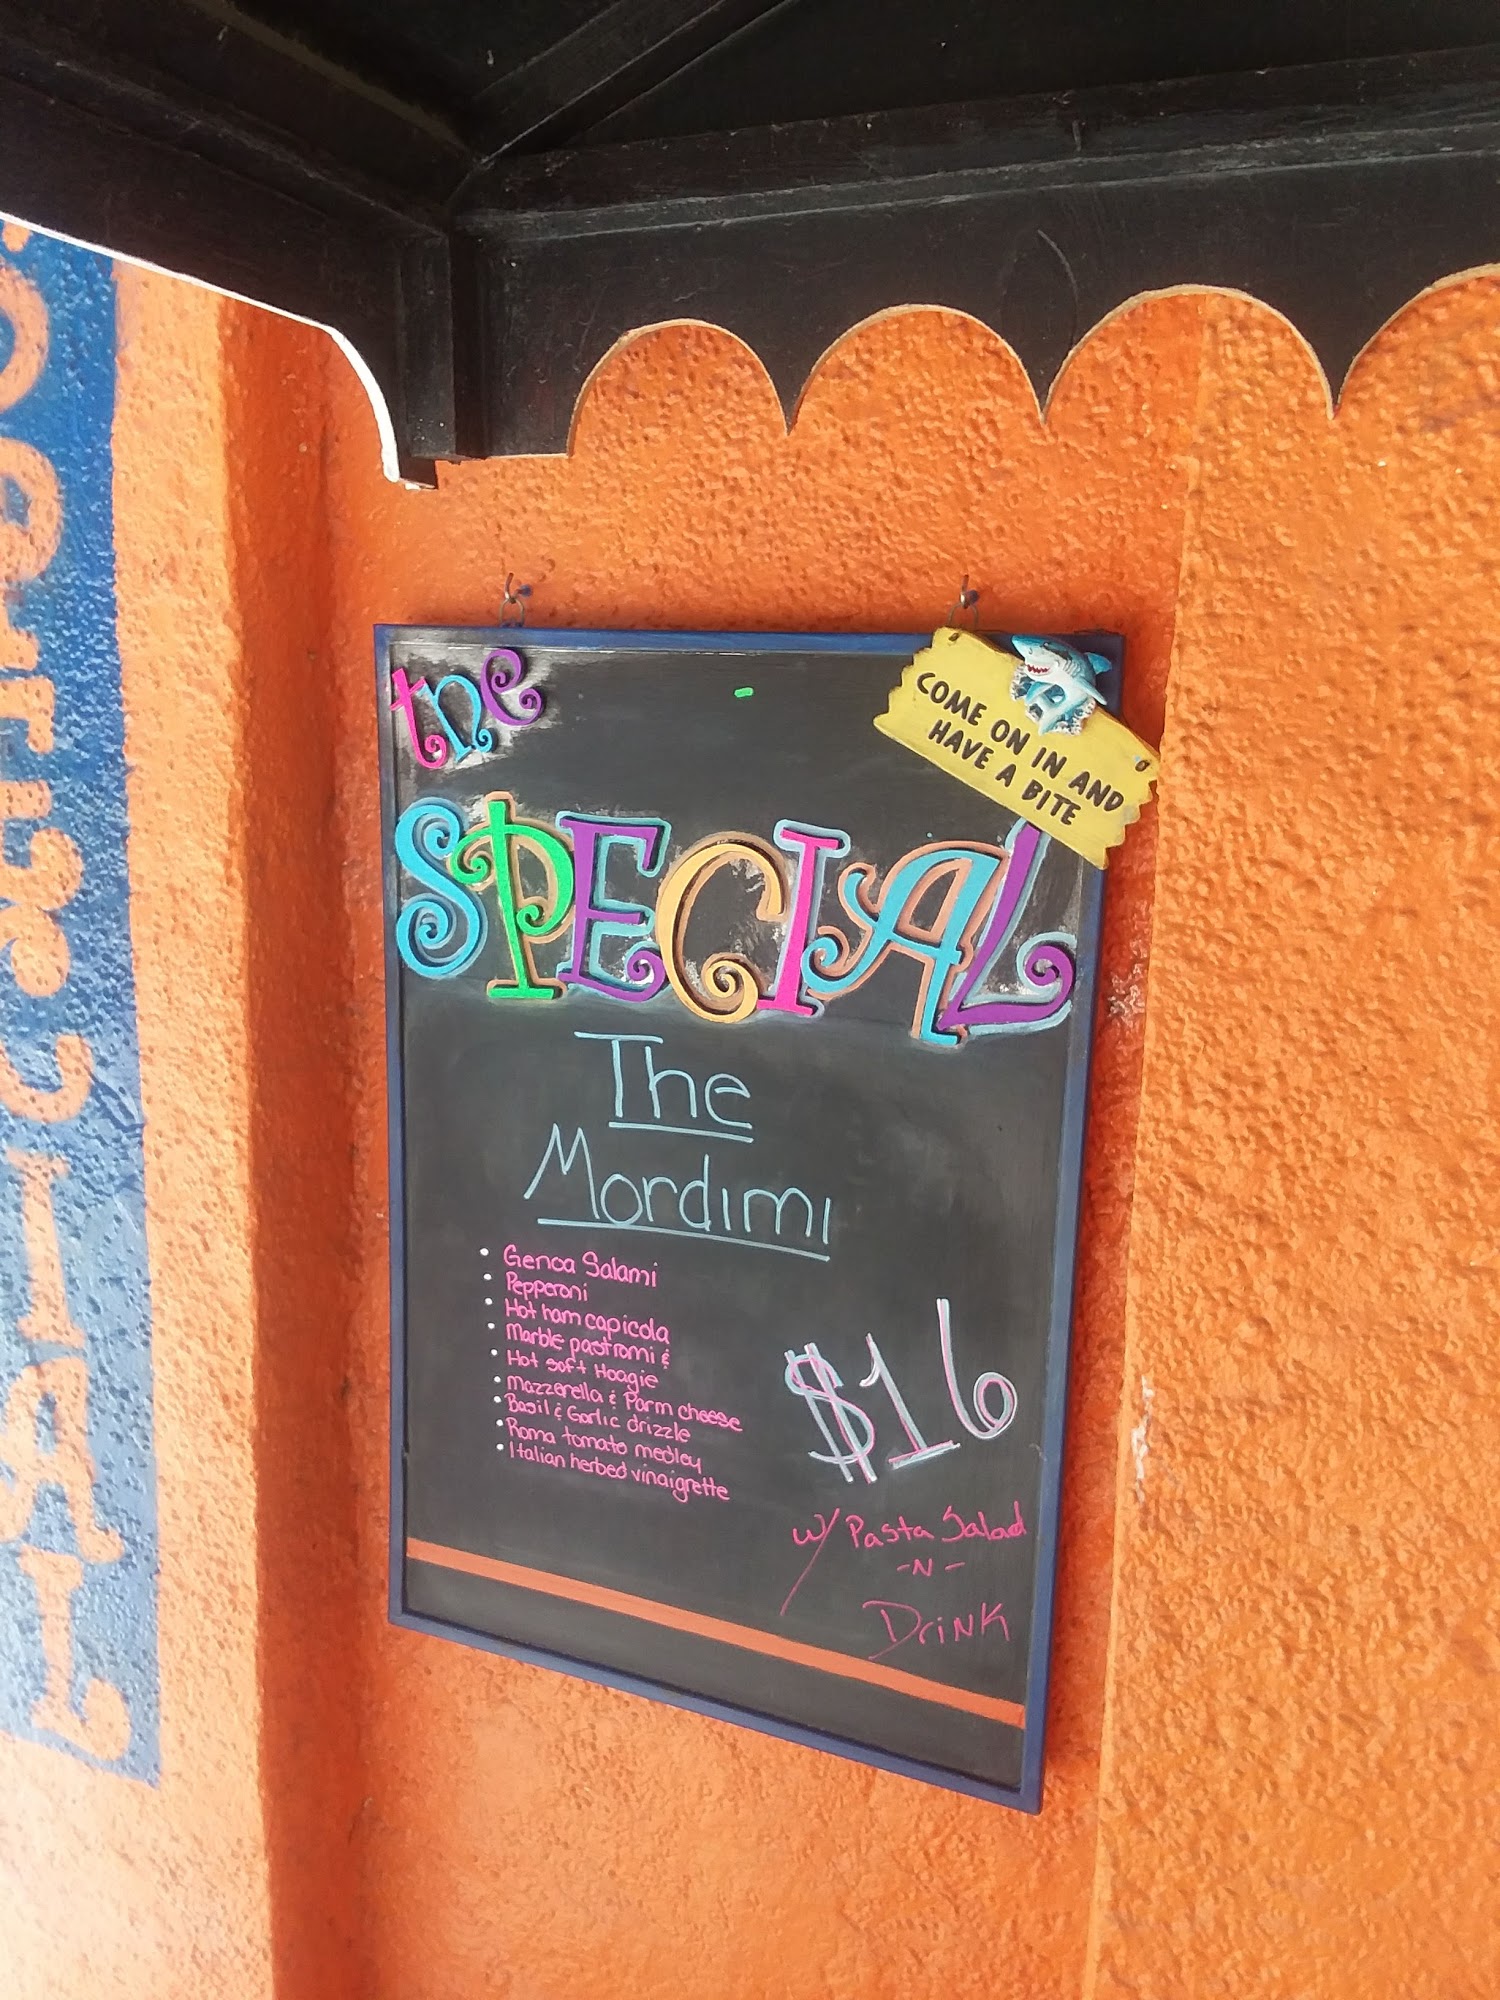 the
SPECIAL
COME ON IN AND
HAVE A BITE
The
Mordimi
• Genoa Salami
• Pepperoni
• Hot ham capicola
• Marble pastromi &
• Hot soft Hoagie
• Mazzerella & Parm cheese
• Basil & Garlic drizzle
• Roma tomato medley
• Italian herbed vinaigrette
$16
w/ Pasta Salad
-N-
Drink